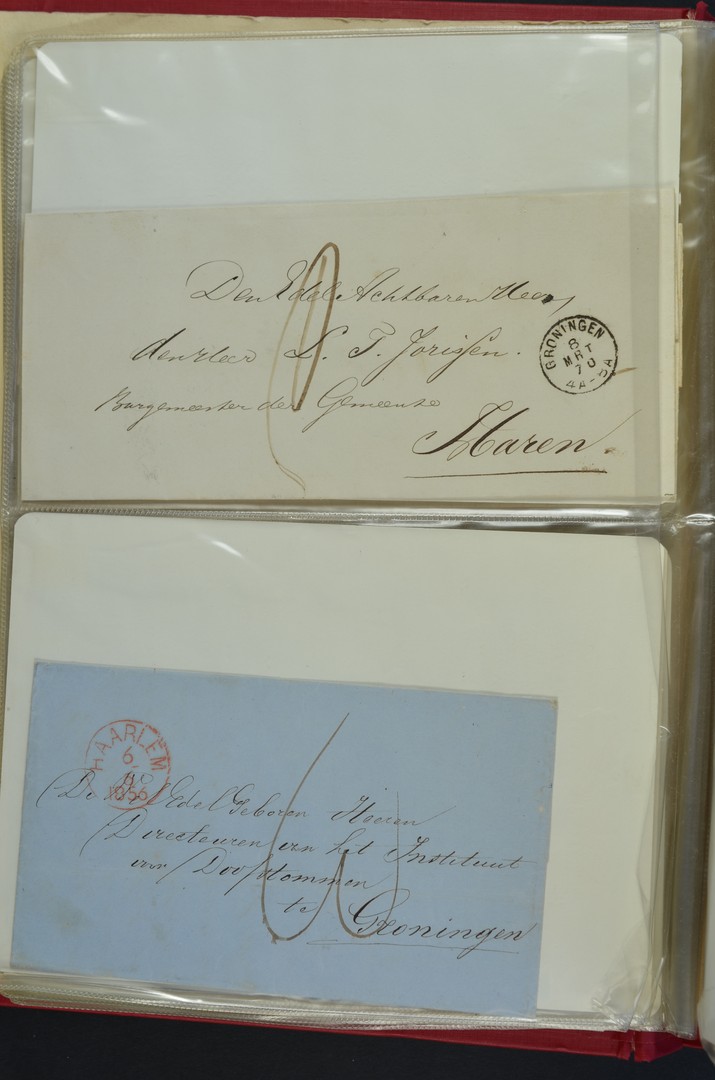 Den Edel Achtbaren Heer,
den Heer L. T. Jorissen.
Burgemeester der Gemeente
Haren.
GRONINGEN
8
MRT
70
4A-5A
HAARLEM
6
1856
De Wel Edel Geboren Heeren
Directeuren van het Instituut
voor Doofstommen
te Groningen